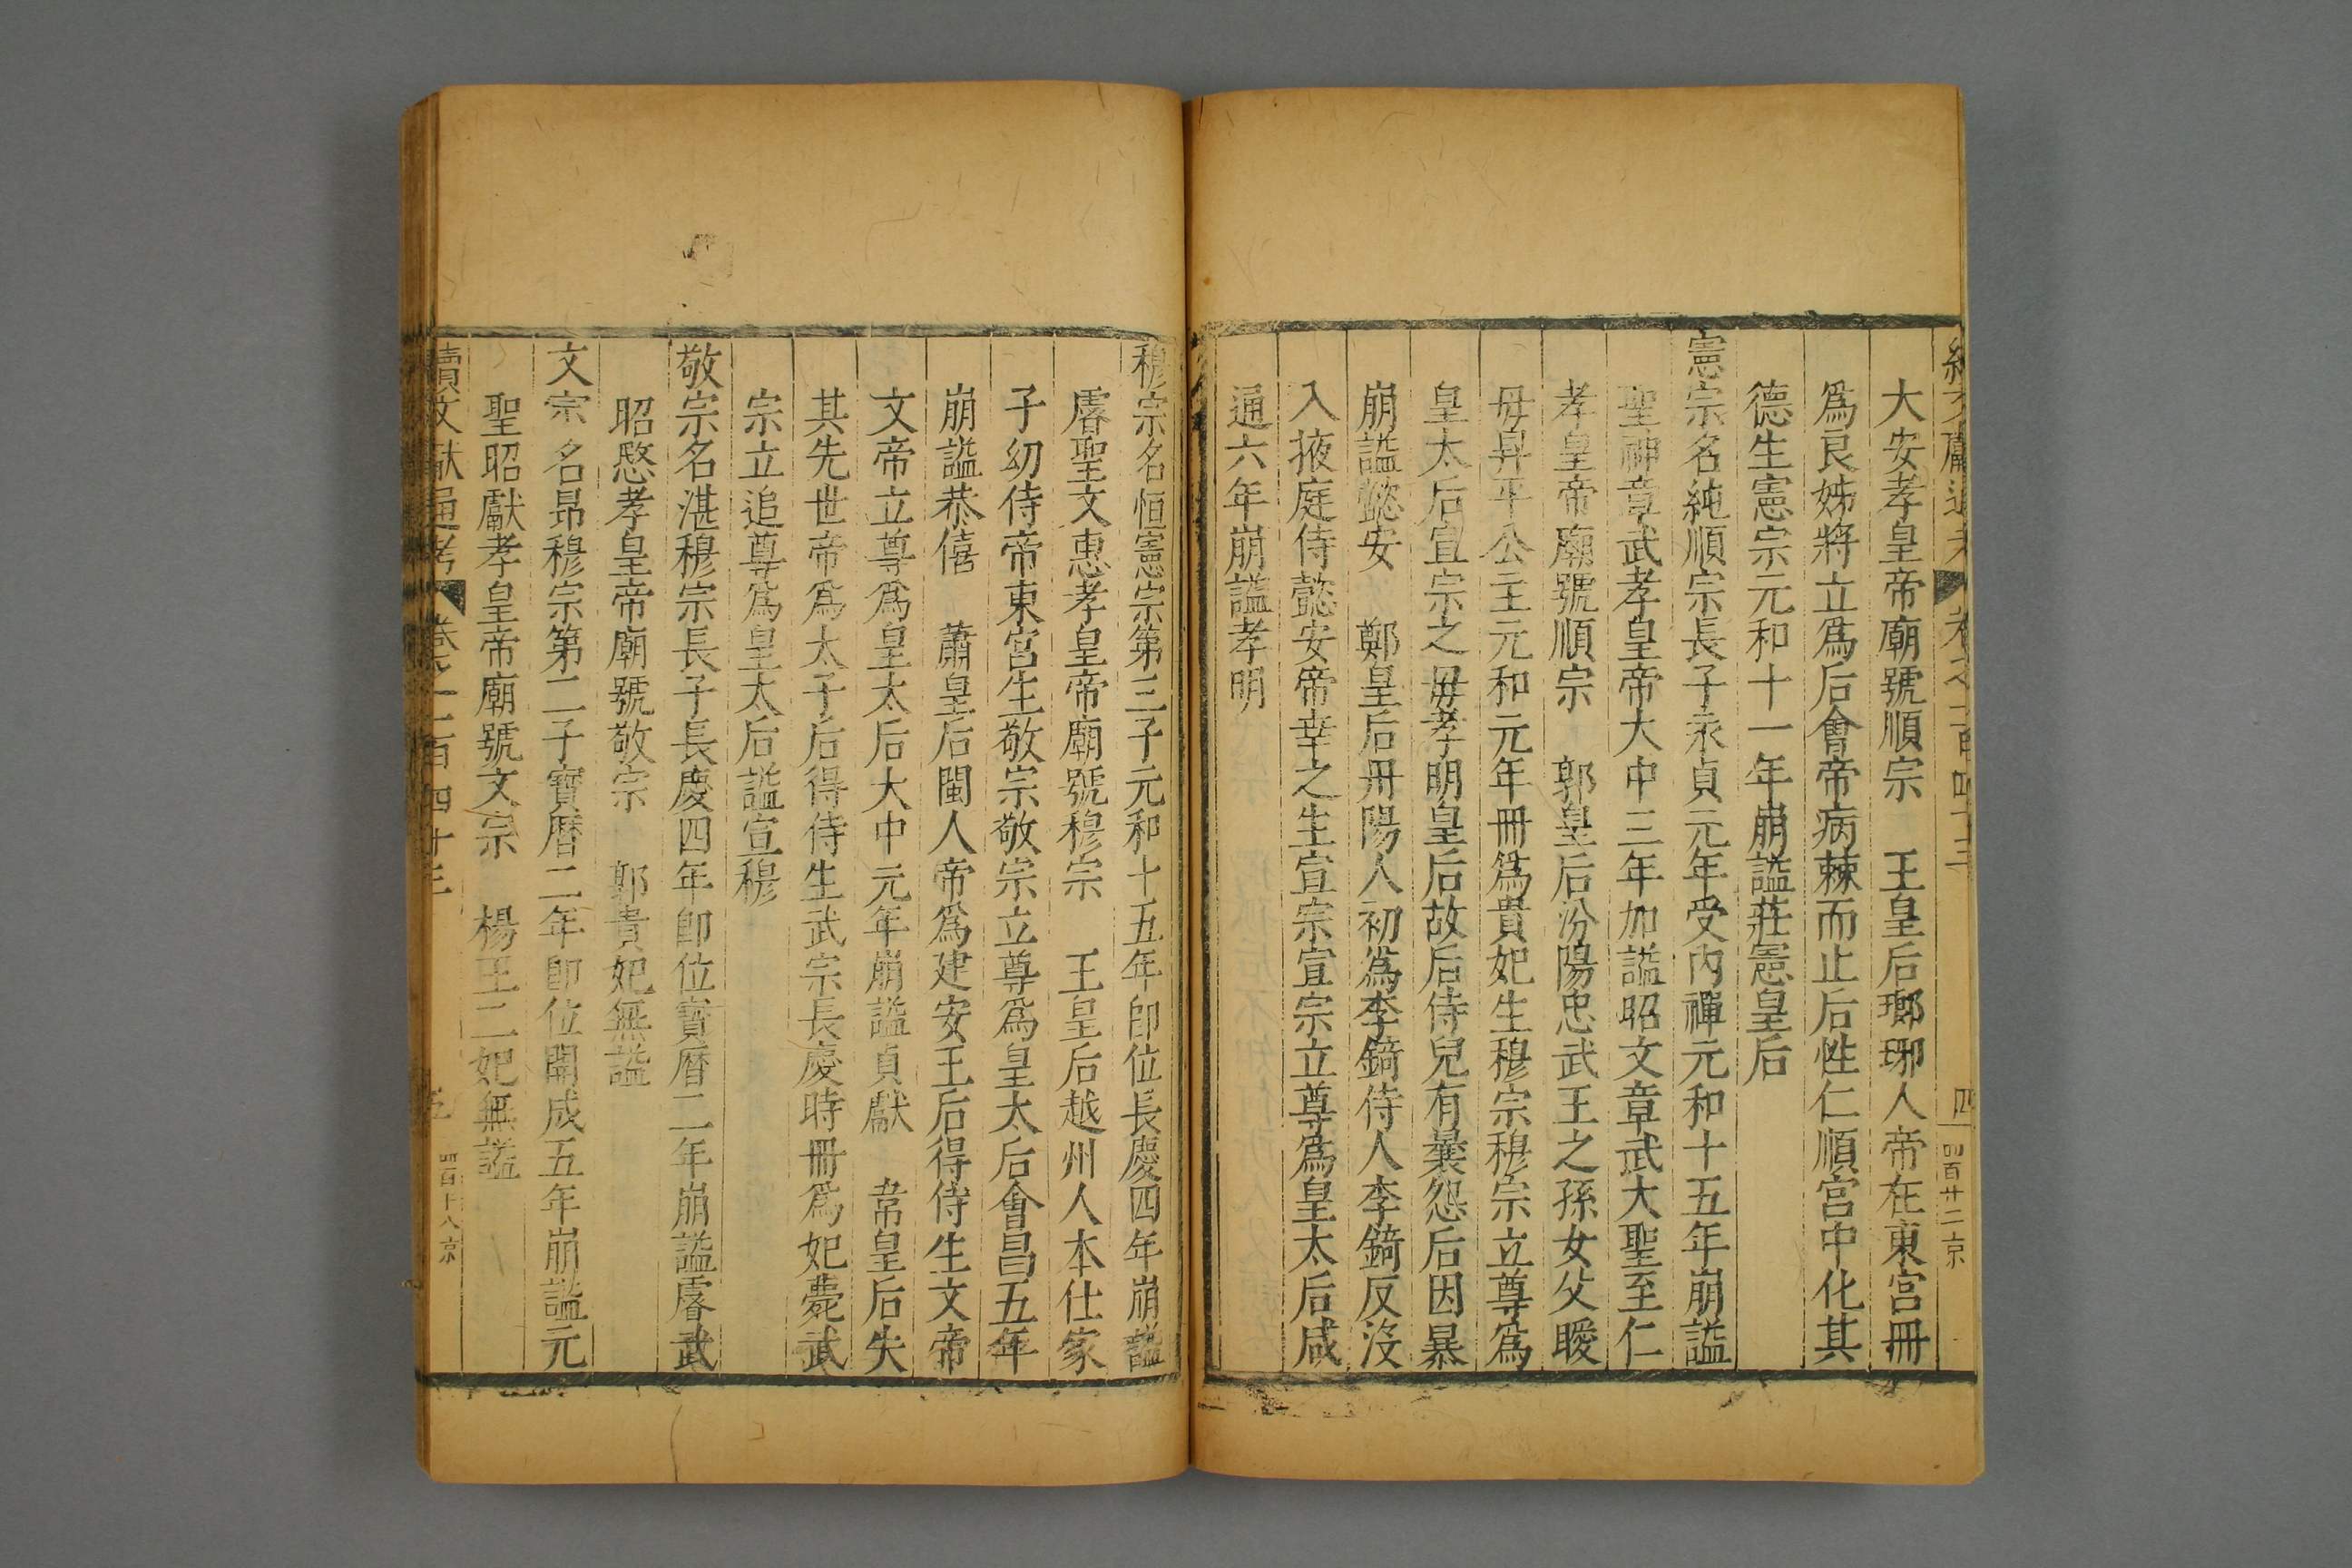 大安孝皇帝廟號順宗　王皇后瑯琊人帝在東宮冊
爲良娣將立爲后會帝病棘而止后性仁順宮中化其
德生憲宗元和十一年崩謚莊憲皇后
憲宗名純順宗長子永貞元年受內禪元和十五年崩謚
聖神章武孝皇帝大中三年加謚昭文章武大聖至仁
孝皇帝廟號順宗　郭皇后汾陽忠武王之孫女父曖
母昇平公主元和元年冊爲貴妃生穆宗穆宗立尊爲
皇太后宣宗之母孝明皇后故后侍兒有曩怨后因暴
崩謚懿安　鄭皇后丹陽人初爲李錡侍人李錡反沒
入掖庭侍懿安帝幸之生宣宗宣宗立尊爲皇太后咸
通六年崩謚孝明
穆宗名恒憲宗第三子元和十五年卽位長慶四年崩謚
睿聖文惠孝皇帝廟號穆宗　王皇后越州人本仕家
子幼侍帝東宮生敬宗敬宗立尊爲皇太后會昌五年
崩謚恭僖　蕭皇后閩人帝爲建安王后得侍生文帝
文帝立尊爲皇太后大中元年崩謚貞獻　韋皇后失
其先世帝爲太子后得侍生武宗長慶時冊爲妃薨武
宗立追尊爲皇太后謚宣穆
敬宗名湛穆宗長子長慶四年卽位寶曆二年崩謚睿武
昭愍孝皇帝廟號敬宗　郭貴妃無謚
文宗名昂穆宗第二子寶曆二年卽位開成五年崩謚元
聖昭獻孝皇帝廟號文宗　楊王二妃無謚
續文獻通考　卷之二百四十三　五　四百十八京